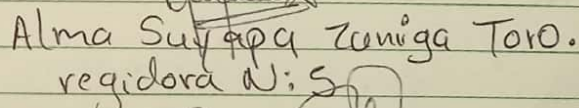 Alma Suyapa Zuniga Toro.
regidora N: 5